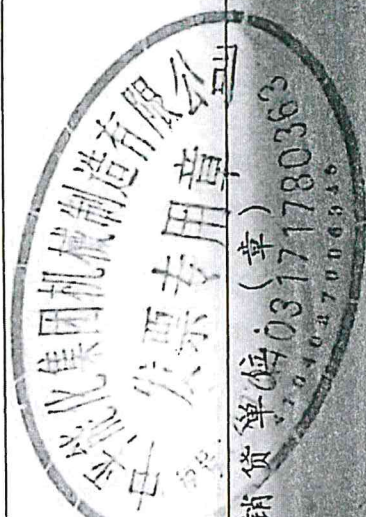 中平能化集团机械制造有限公司
发票专用章
03171780363
销货单位：（章）